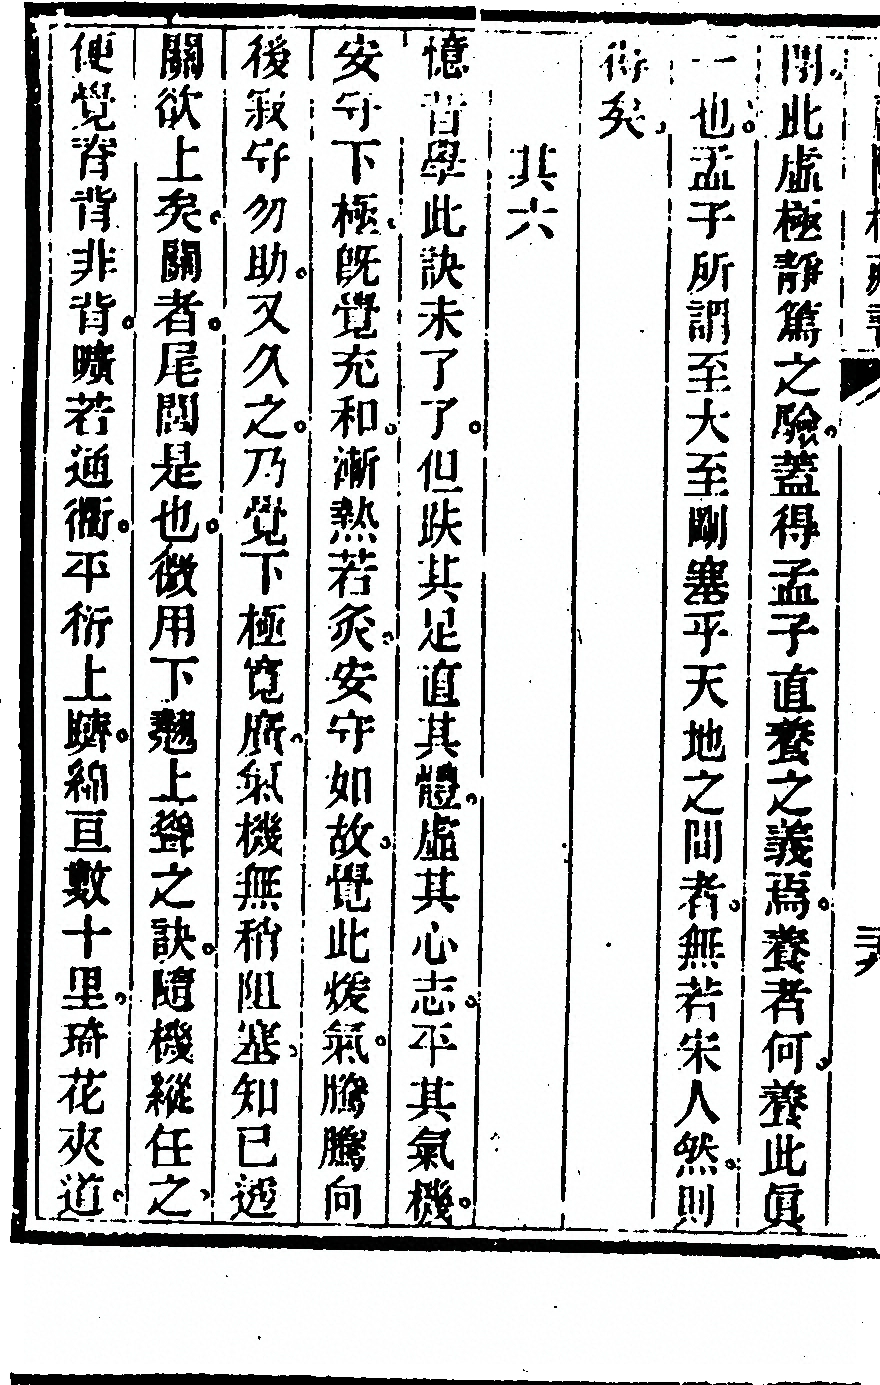 閒此虛極靜篤之驗。蓋得孟子直養之義焉。養者何。養此眞
一也。孟子所謂至大至剛塞乎天地之間者。無若宋人然。則
術矣。
其六
憶昔學此訣未了了。但趺其足直其體。虛其心志。平其氣機。
安守下極。旣覺充和。漸熱若灸。安守如故。覺此煖氣。騰騰向
後寂守勿助。又久之。乃覺下極寬廓。氣機無稍阻塞。知已逼
關欲上矣。關者。尾閭是也。微用下翹上聳之訣。隨機縱任之。
便覺脊背非背。曠若通衢。平衍上躋。綿亘數十里。琦花夾道。